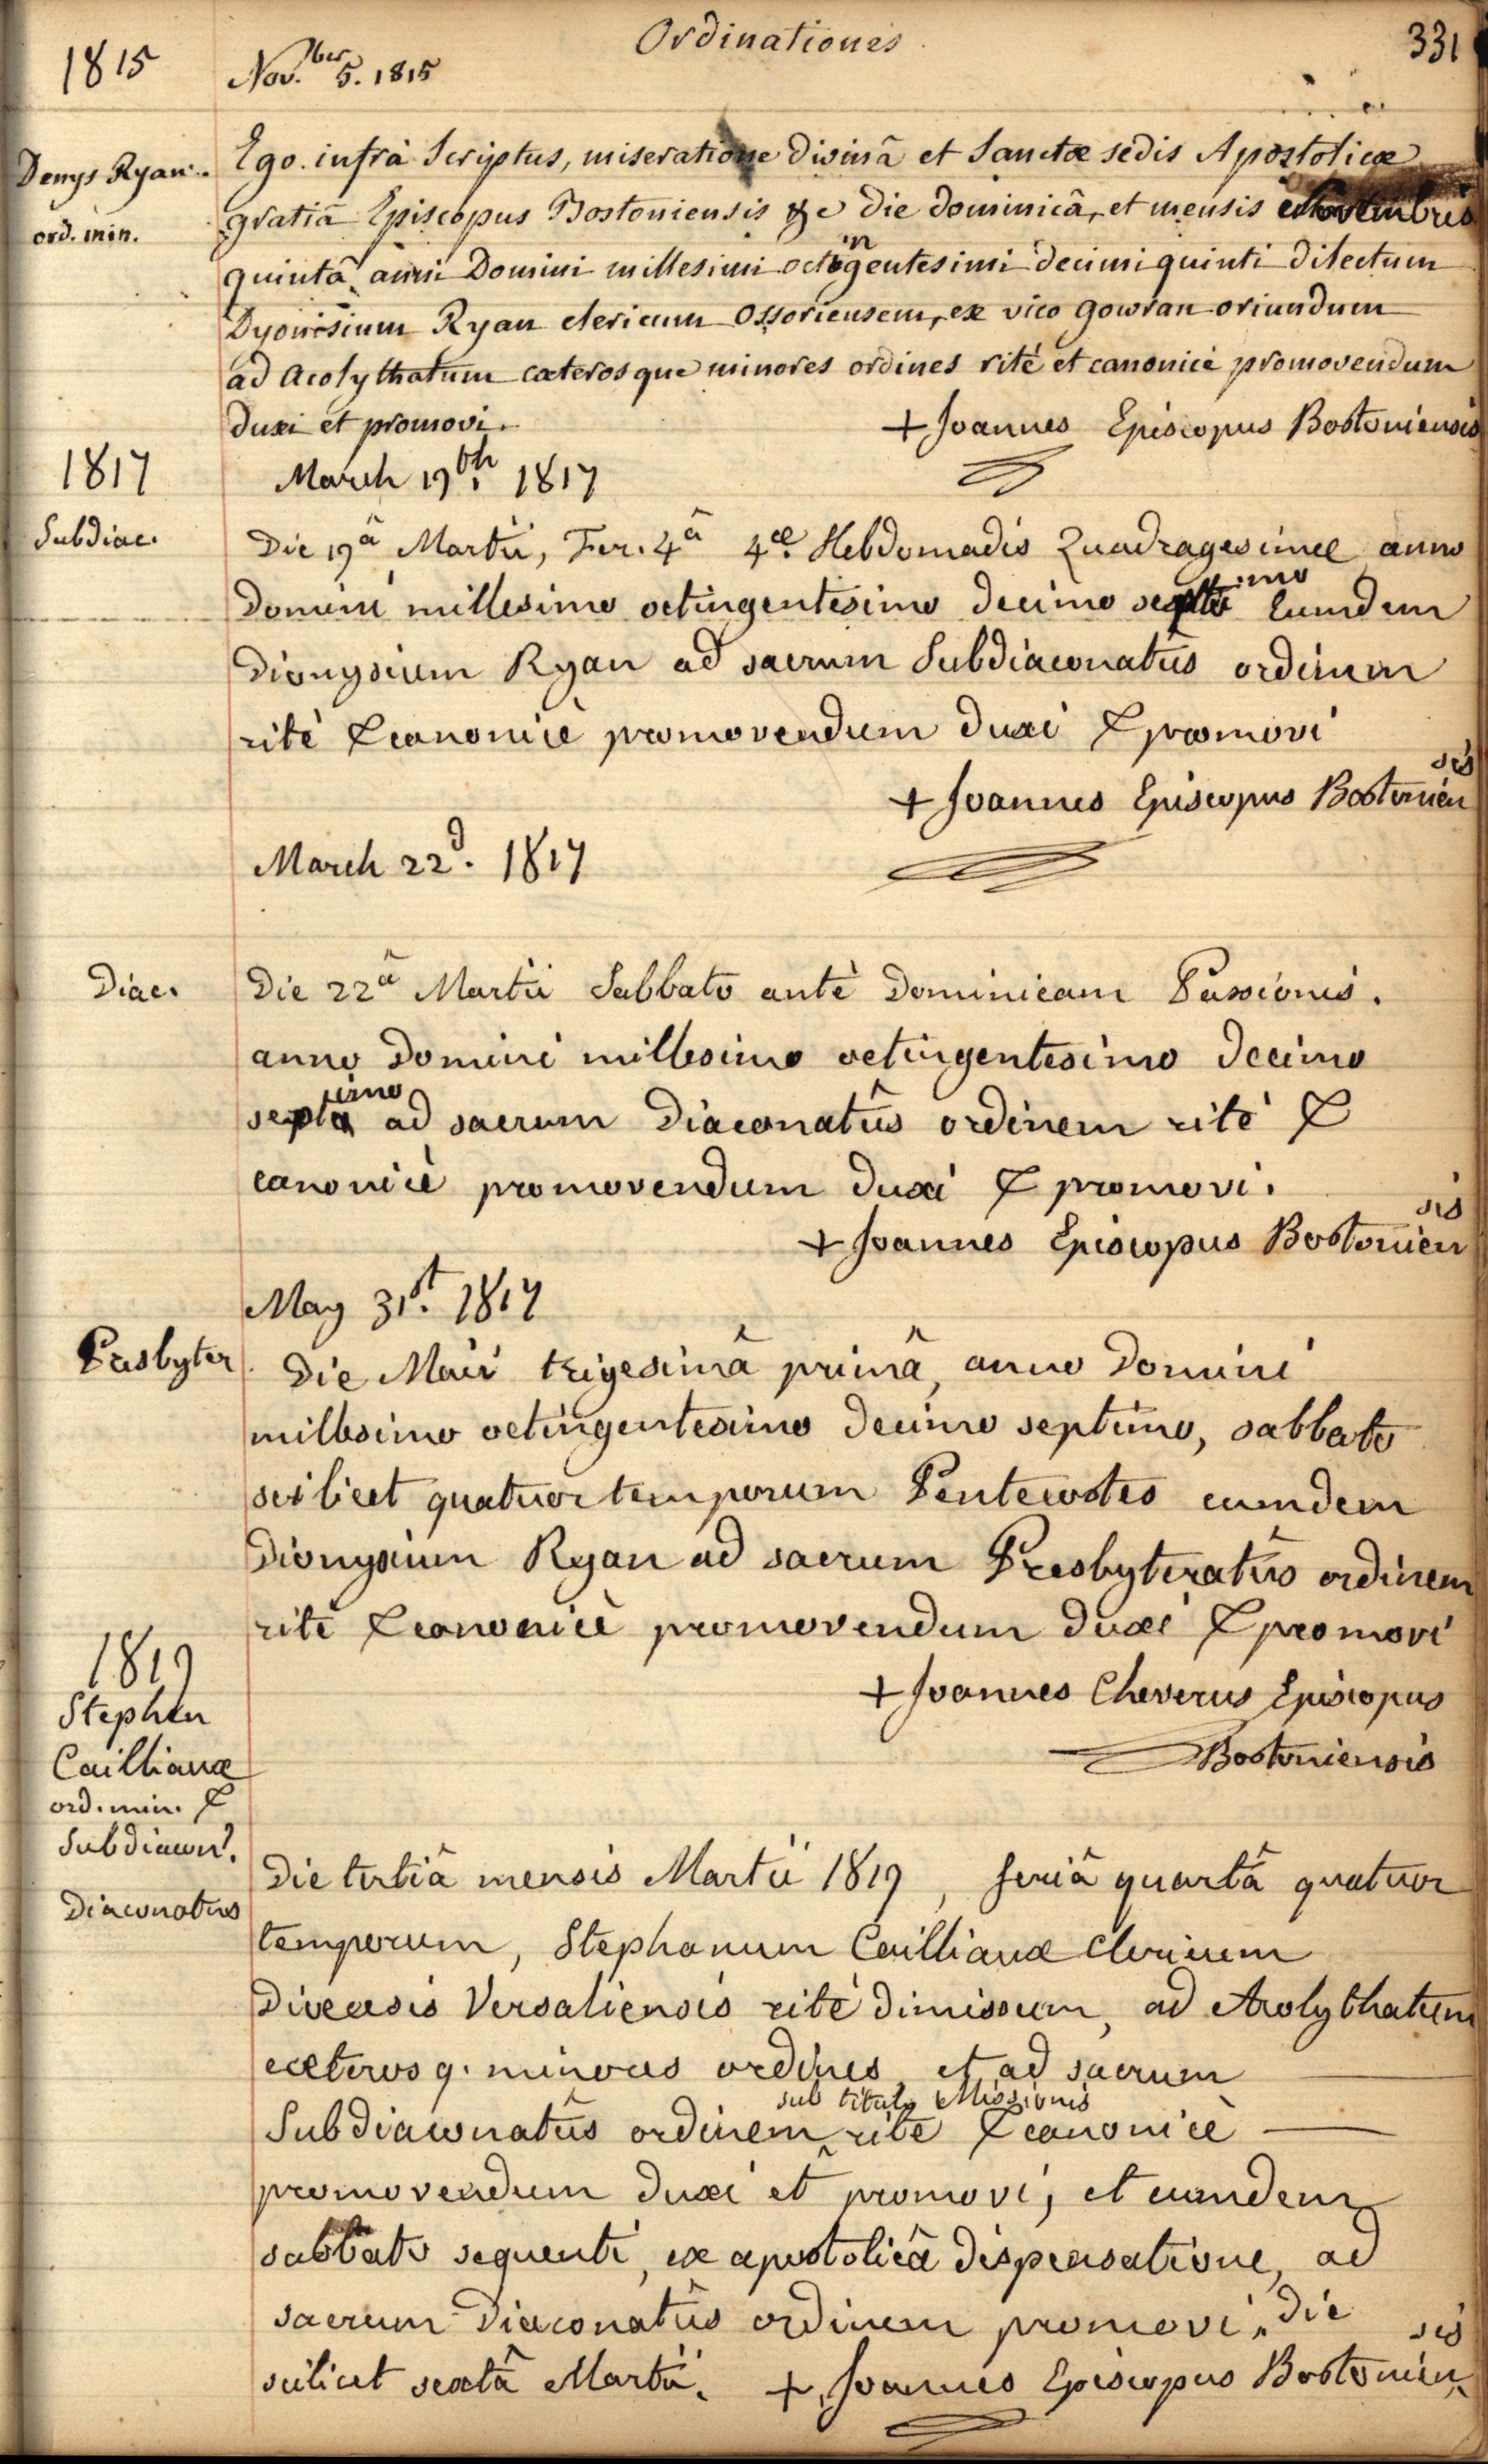 Ordinationes.
331
1815
Nov.ber 5. 1815
Denys Ryan.
ord. min.
Ego infrà Scriptus, miseratione divinâ et Sanctæ sedis Apostolicæ
gratiâ Episcopus Bostoniensis &c die dominicâ, et mensis Novembris
quintâ anni Domini millesimi octingentesimi decimi quinti dilectum
Dyonisium Ryan clericum Ossoriensem, ex vico Gowran oriundum
ad Acolythatum cæterosque minores ordines ritè et canonicè promovendum
duxi et promovi.
+ Joannes Episcopus Bostoniensis
1817
March 19th. 1817
Subdiac.
Die 19â Martii, Fer. 4â 4æ Hebdomadis Quadragesimæ anno
Domini millesimo octingentesimo decimo septimo Eumdem
Dionysium Ryan ad sacrum Subdiaconatûs ordinem
ritè & canonicè promovendum duxi & promovi
+ Joannes Episcopus Bostoniensis
March 22d. 1817
Diac.
Die 22â Martii Sabbato antè Dominicam Passionis.
anno Domini millesimo octingentesimo decimo
septimo ad sacrum Diaconatûs ordinem ritè &
canonicè promovendum duxi & promovi.
+ Joannes Episcopus Bostoniensis
May 31st. 1817
Presbyter.
Die Maii trigesimâ primâ, anno Domini
millesimo octingentesimo decimo septimo, sabbato
scilicet quatuor temporum Pentecostes eumdem
Dionysium Ryan ad sacrum Presbyteratûs ordinem
ritè & canonicè promovendum duxi & promovi
+ Joannes Cheverus Episcopus
Bostoniensis
1819
Stephen
Cailliaux
ord. min. &
Subdiacon.
Diaconatus
Die tertiâ mensis Martii 1819, feriâ quartâ quatuor
temporum, Stephanum Cailliaux clericum
Diœcesis Versaliensis ritè dimissum, ad Acolythatum
cæterosq. minores ordines et ad sacrum
sub titulo Missionis
Subdiaconatûs ordinem ^ ritè & canonicè
promovendum duxi et promovi, et eumdem
sabbato sequenti, ex apostolicâ dispensatione, ad
sacrum Diaconatûs ordinem promovi, die
scilicet sextâ Martii. + Joannes Episcopus Bostoniensis